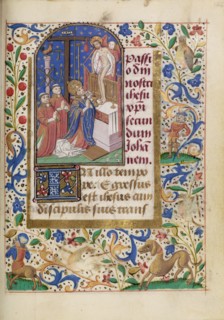 Passi
o dni
nostri
ihesu
xpi
secun
dum
Joha
nem.
In illo tempo
re. Egressus
est ihesus cum
discipulis suis trans